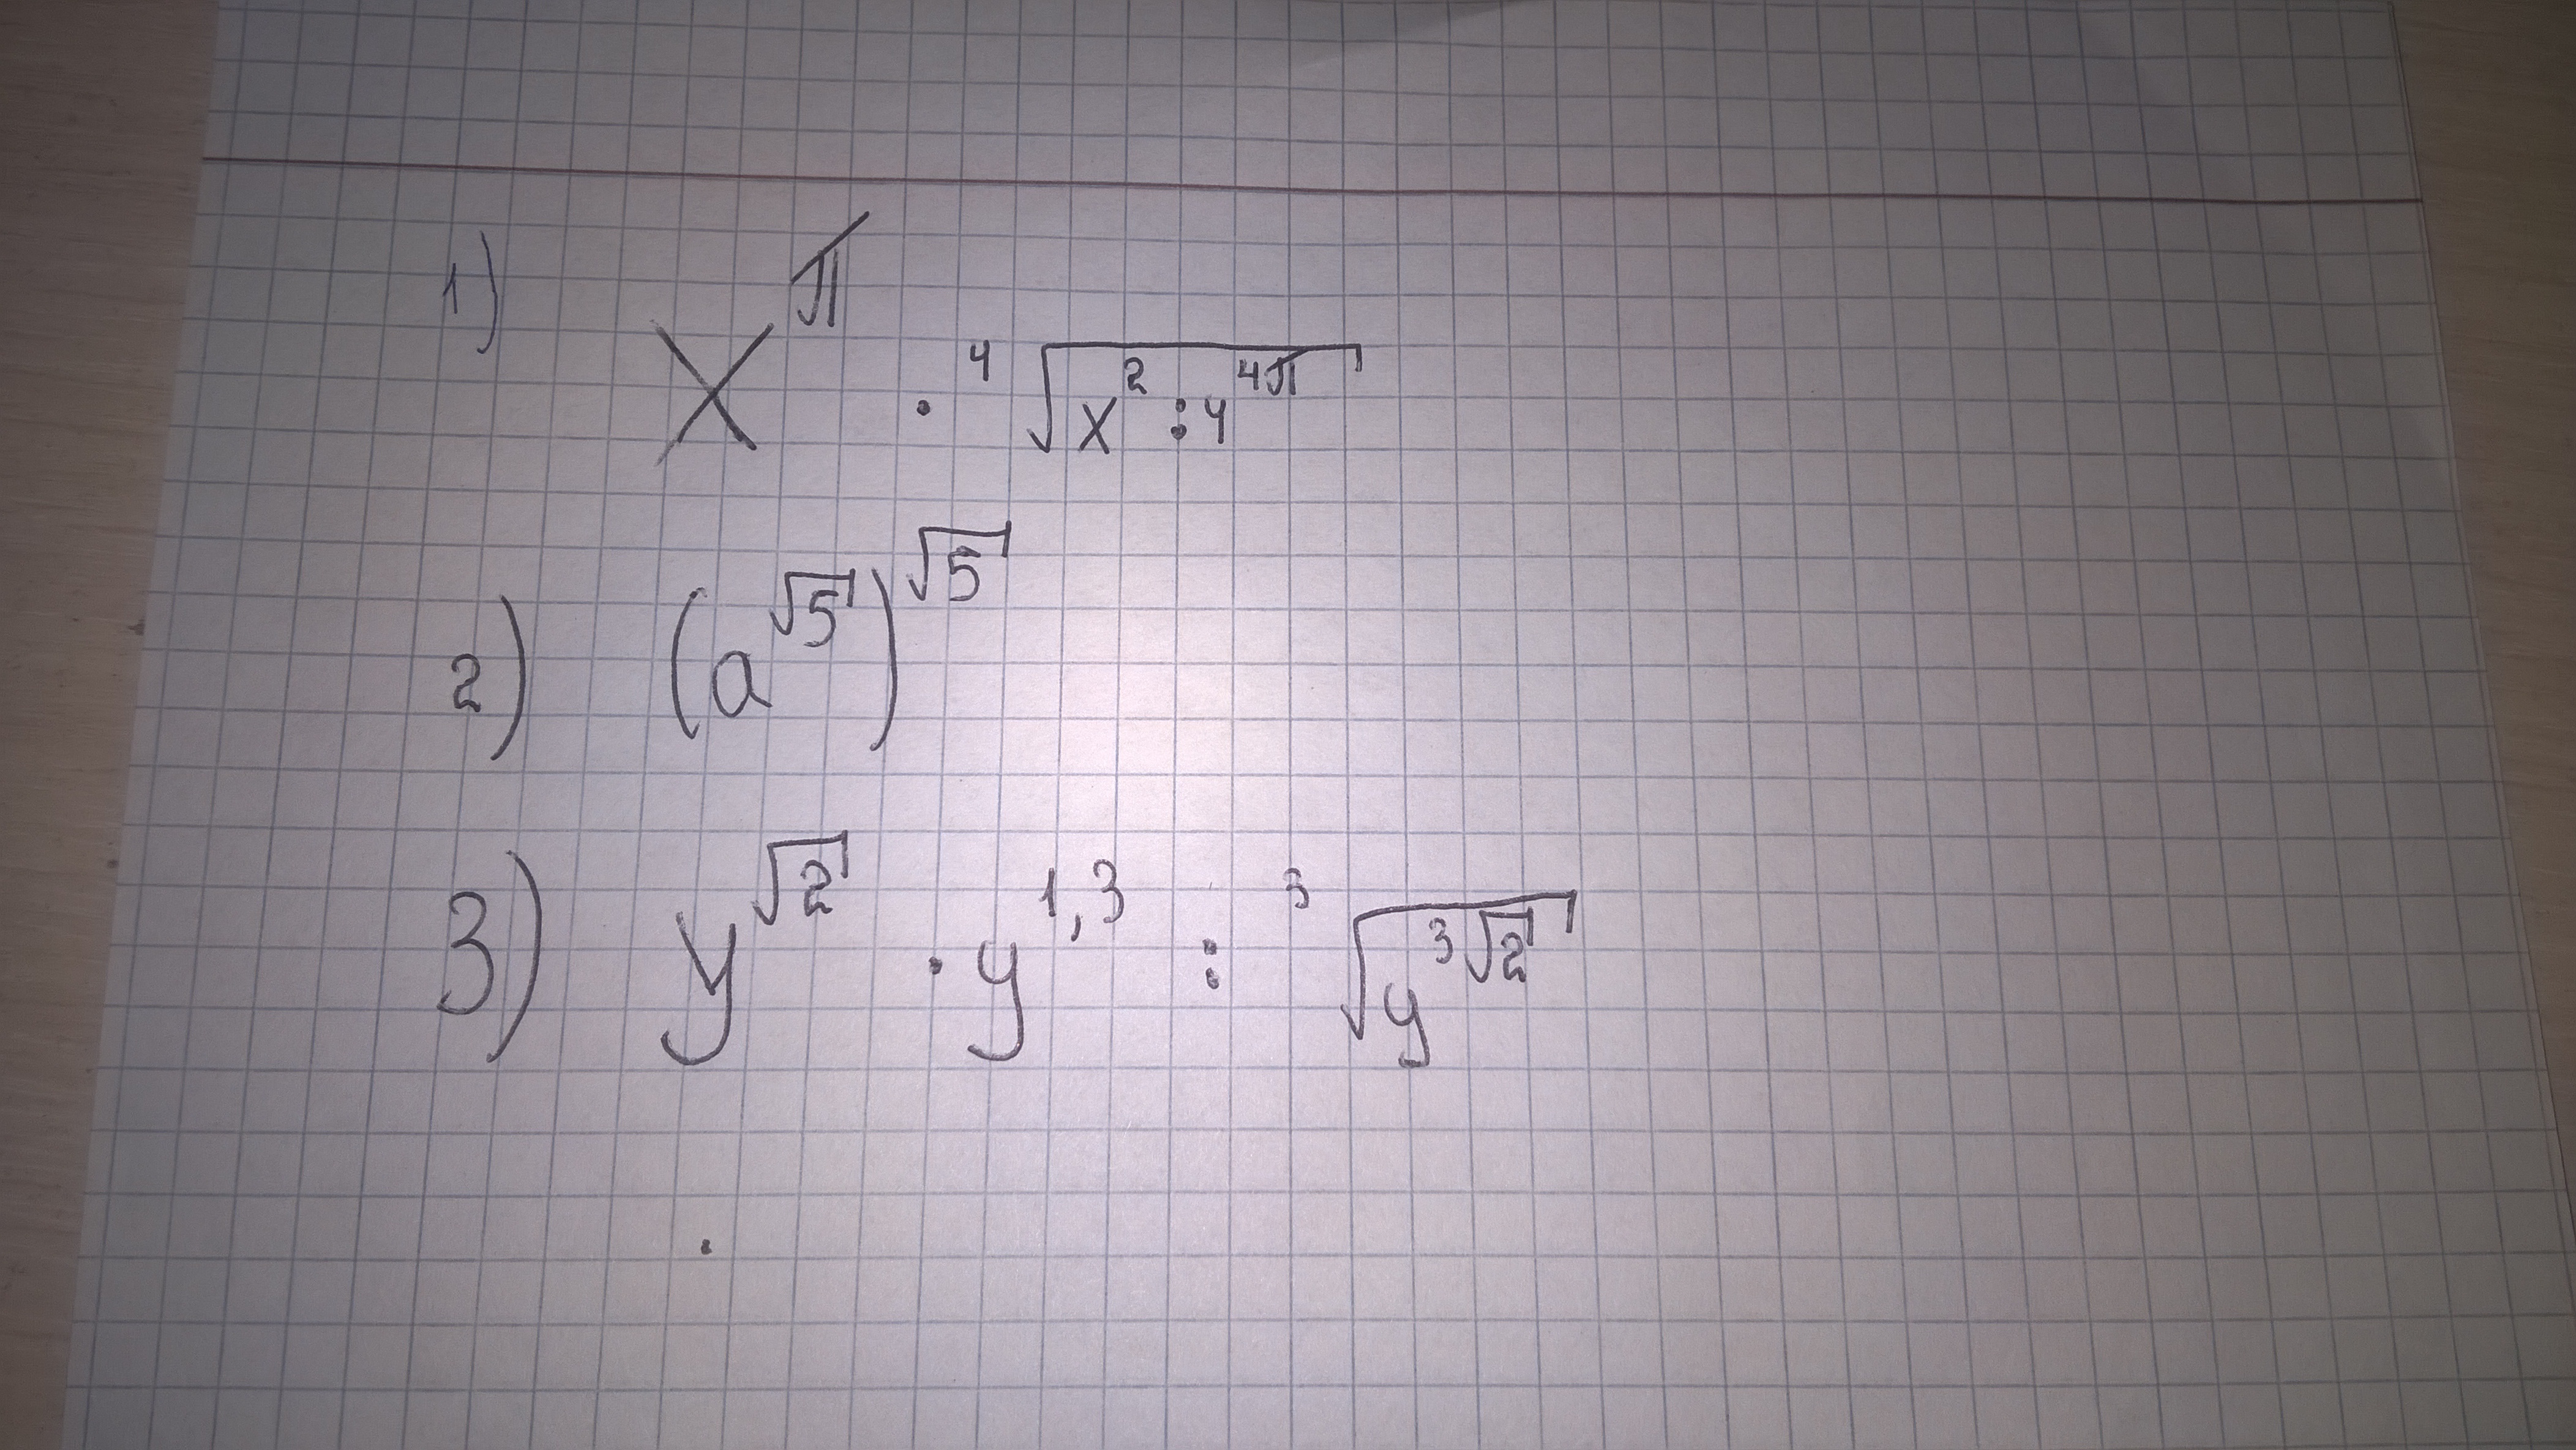 1) x^π · ⁴√(x² : 4^(4π))
2) (a^√5)^√5
3) y^√2 · y^1,3 : ³√(y^(3√2))